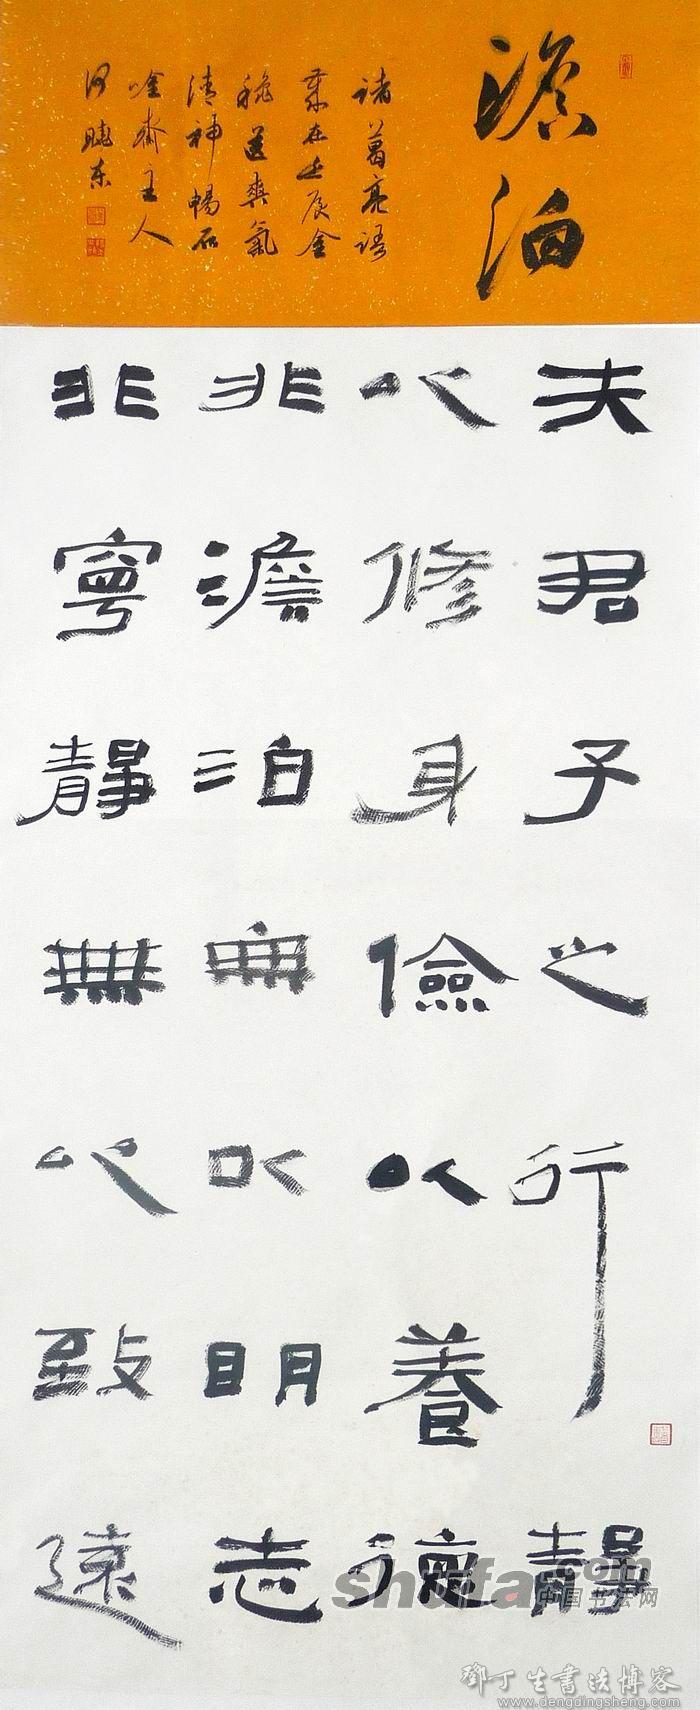 澹泊
诸葛亮语
歲在壬辰金
秋送爽氣
清神暢石
唫齋主人
曉东
夫君子之行靜
以修身儉以養德
非澹泊無以明志
非寧靜無以致遠
shufa.com
中国书法网
鄧丁生書法博客
www.dengdingsheng.com